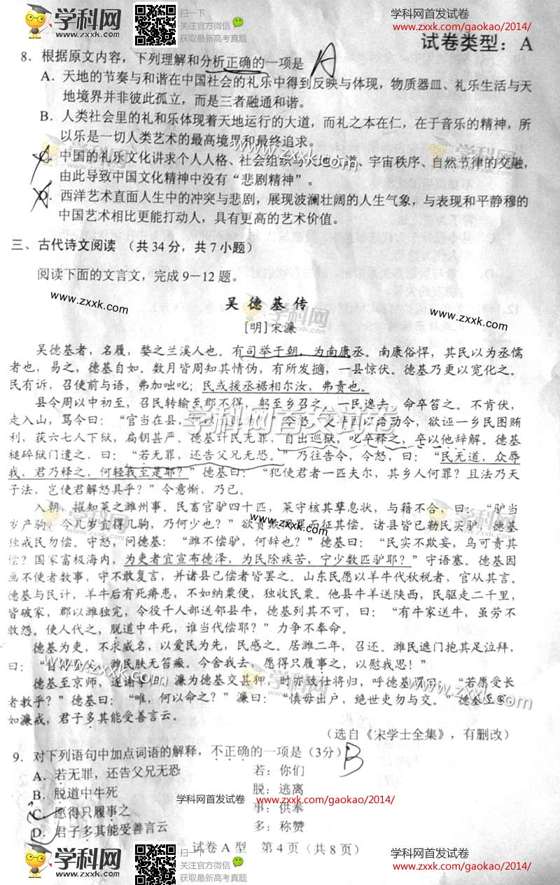 学科网首发试卷
www.zxxk.com/gaokao/2014/
试卷类型：A
8．根据原文内容，下列理解和分析正确的一项是 A
A．天地的节奏与和谐在中国社会的礼乐中得到反映与体现，物质器皿、礼乐生活与天
地境界并非彼此孤立，而是三者融通和谐。
B．人类社会里的礼和乐体现着天地运行的大道，而礼之本在仁，在于音乐的精神，所
以乐是一切人类艺术的最高境界和最终追求。
C．中国的礼乐文化讲求个人人格、社会组织与天地之道、宇宙秩序、自然节律的交融，
由此导致中国文化精神中没有“悲剧精神”。
D．西洋艺术直面人生中的冲突与悲剧，展现波澜壮阔的人生气象，与表现和平静穆的
中国艺术相比更能打动人，具有更高的艺术价值。
三、古代诗文阅读 （共34分，共7小题）
阅读下面的文言文，完成9－12题。
www.zxxk.com
吴德基传
[明]宋濂
吴德基者，名履，婺之兰溪人也。有司举于朝，为南康丞。南康俗悍，其民以为丞儒
者也，易之，德基自如。数月皆周知其情伪，有所发擿，一县惊伏。德基乃更以宽化之。
民有讼，召使前与语，弗加咄叱；民或援丞裾相尔汝，弗责也。
县令周以中初至，召民转输至郡不得，躬至乡召之，一民逸去，命卒笞之。不肯伏，
走入山，骂令曰：“官当在县，
动令，欲诬一乡民图贿
利，获六七人下狱，扃钥甚严。德基计民无罪，自出巡狱，叱卒释之，卒以他辞解。德基
槌碎狱门遣之，曰：“若无罪，还告父兄无恐。”乃往告令，令怒，曰：“民无道，众辱
我，君乃释之，何轻我至是耶？”德基曰：“犯使君者一匹夫尔，其乡人何罪？且法乃天
子法，岂使君解怒具乎？”令意惭，乃已。
入朝，擢知莱之潍州事，民畜官驴四十匹，莱守核其孳息状，与籍不合，曰：“驴当
岁产驹，今几岁宜得几驹，乃何少也？”欲责欺罔罪而征其偿。诸县皆已勒民买驴，德基
独戒民勿偿。守怒，问德基：“潍不偿驴，何辞也？”德基曰：“民实不欺妄，乌可责其
偿？国家富极海内，为吏者宜宣布德泽，为民除疾苦，宁少数匹驴耶？”守语塞。德基因
画不便者数事，守不敢复言，并诸县已偿者皆罢之。山东民愿以羊牛代秋税者，官从其言。
德基与民计，羊牛后有死瘠患，不如纳粟便，独收民粟。他县牛羊送陕西，民驱走二千里，
皆破家，郡以潍独完，令役千人部送邻县牛，德基列其不可，曰：“有牛家送牛，虽劳不
敢怨。使人代之，脱道中牛死，谁当代偿耶？”力争不奉命。
德基为吏，不求威名，以爱民为先，民感之。居潍二年，召还。潍民遮门抱其足泣拜，
曰：“
潍民肤无笞瘢。今舍我去，愿得只履事之，以慰我思！”
德基至京师，遂请
濂为德基交县狎，时亦致仕将归，呼德基谓曰：“若愿受长
者教乎？”德基曰：“唯，何以命之？”濂曰：“慎毋出户，绝世吏勿与交。”德基至家
如濂戒，君子多其能受善言云。
（选自《宋学士全集》，有删改）
9．对下列语句中加点词语的解释，不正确的一项是（3分） B
A．若无罪，还告父兄无恐 若：你们
B．脱道中牛死 脱：逃离
C．愿得只履事之 事：供奉
D．君子多其能受善言云 多：称赞
学科网首发试卷
www.zxxk.com/gaokao/2014/
试卷A型 第4页（共8页）
学科网
www.zxxk.com
扫一扫
关注官方微信
获取最新高考真题
学科网首发试卷
www.zxxk.com/gaokao/2014/